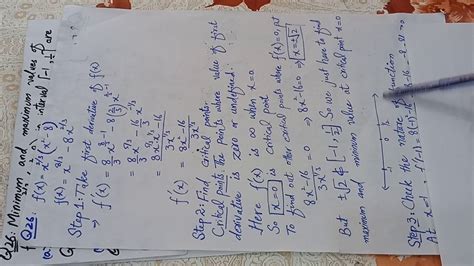 Q26: Minimum and maximum values of
f(x) = x^{2/3}(x²-8) in interval [-1, 1/2] are
Q26 f(x) = x^{2/3}(x²-8)
f(x) = x^{8/3} - 8x^{2/3}
Step 1: Take first derivative of f(x)
⇒ f'(x) = 8/3 x^{8/3-1} - 8(2/3) x^{2/3-1}
= 8/3 x^{5/3} - 16/3 x^{-1/3}
= 8x²-16 / 3x^{1/3}
f'(x) = 8x²-16 / 3x^{1/3}
Step 2: Find critical points.
Critical points: The points where value of first
derivative is zero or undefined.
Here f'(x) is ∞ when x=0
So x=0 is critical point
To find out other critical points when f'(x)=0, put
8x²-16 / 3x^{1/3} = 0 ⇒ 8x²-16=0 ⇒ x=±√2
But ±√2 ∉ [-1, 1/2] So we just have to find
maximum and minimum value at critical point x=0
Step 3: Check the nature of function
At x=-1,